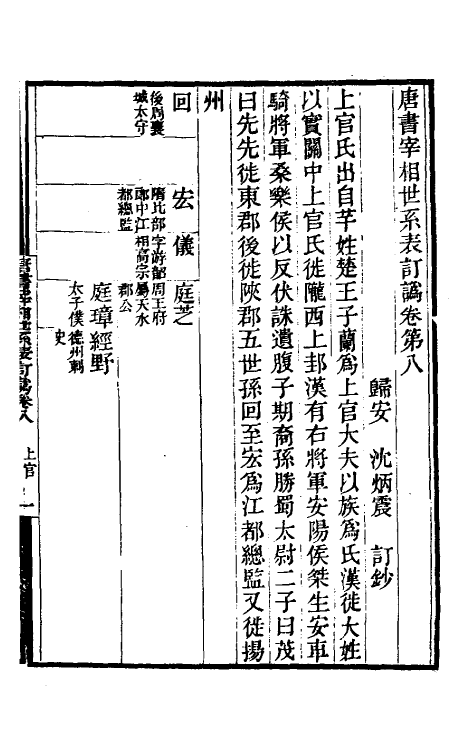 唐書宰相世系表訂譌卷第八
歸安 沈炳震 訂鈔
上官氏出自芈姓楚王子蘭為上官大夫以族為氏漢徙大姓
以實關中上官氏徙隴西上邽漢有右將軍安陽侯桀生安車
騎將軍桑樂侯以反伏誅遺腹子期裔孫勝蜀太尉二子曰茂
曰先先徙東郡後徙陝郡五世孫回至宏為江都總監又徙揚
州
回
後周襄
城太守
宏
隋比部
郎中江
都總監
儀
字游韶
相高宗
庭芝
周王府
屬天水
郡公
庭璋
太子僕
經野
德州刺
史
唐書宰相世系表訂譌卷八
上官
一